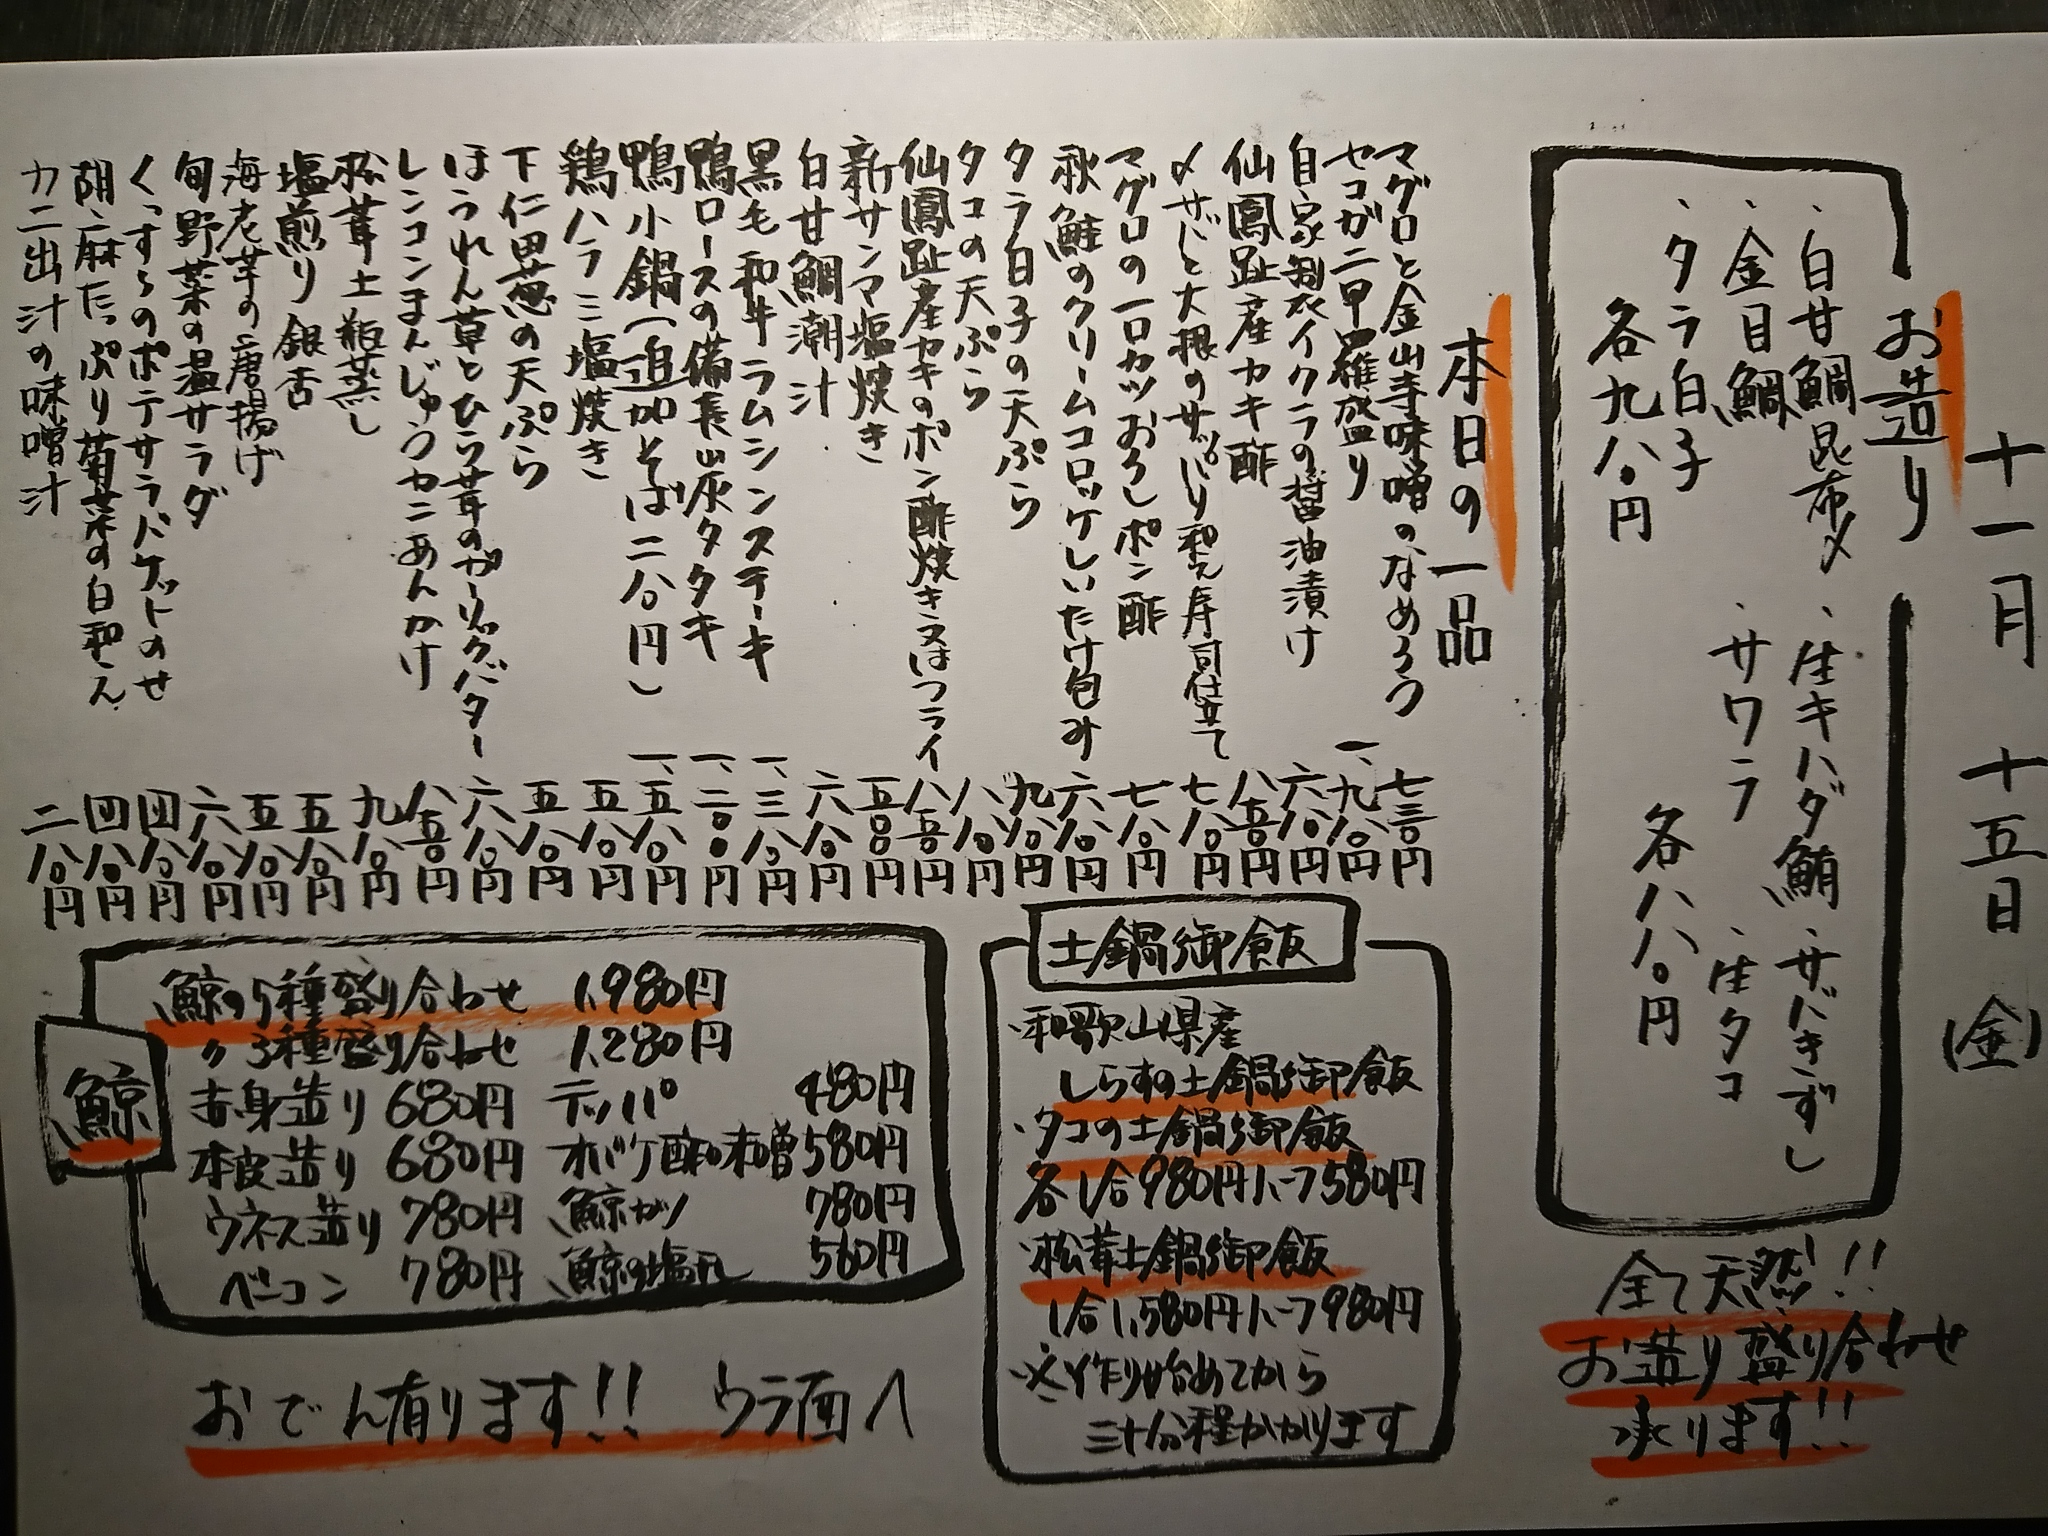 十一月 十五日 (金)
お造り
・白甘鯛昆布〆 ・生キハダ鮪 ・サバきずし
・金目鯛 ・サワラ ・生タコ
・タラ白子
各九八〇円 各八八〇円
全て天然!!
お造り盛り合わせ
承ります!!
本日の一品
マグロと金山寺味噌のなめろう 七三〇円
セコガニ甲羅盛り 一、九八〇円
自家製イクラの醤油漬け 六八〇円
仙鳳趾産カキ酢 八五〇円
〆サバと大根のサッパリ和え寿司仕立て 七八〇円
マグロの一口カツおろしポン酢 七八〇円
秋鮭のクリームコロッケしいたけ包み 六八〇円
タラ白子の天ぷら 九八〇円
タコの天ぷら 八八〇円
仙鳳趾産カキのポン酢焼き又はフライ 八五〇円
新サンマ塩焼き 五〇〇円
白甘鯛潮汁 六八〇円
黒毛和牛ラムシンステーキ 一、三八〇円
鴨ロースの備長炭タタキ 一、二〇〇円
鴨小鍋(追加そば二八〇円) 一、五八〇円
鶏ハラミ塩焼き 五八〇円
下仁田葱の天ぷら 五八〇円
ほうれん草とひら茸のガーリックバター 六八〇円
レンコンまんじゅうカニあんかけ 八五〇円
松茸土瓶蒸し 九八〇円
塩煎り銀杏 五八〇円
海老芋の唐揚げ 五八〇円
旬野菜の温サラダ 六八〇円
くっすらのポテサラバケットのせ 四八〇円
胡麻たっぷり菊菜の白和え 四八〇円
カニ出汁の味噌汁 二八〇円
土鍋御飯
・和歌山県産
しらすの土鍋御飯
・タコの土鍋御飯
各1合980円ハーフ580円
・松茸土鍋御飯
1合1,580円ハーフ980円
※作り始めてから
三十分程かかります
鯨
鯨の5種盛り合わせ 1,980円
〃 3種盛り合わせ 1,280円
赤身造り 680円 テッパ 480円
本皮造り 680円 オバケ酢味噌 580円
ウネス造り 780円 鯨カツ 780円
ベーコン 780円 鯨の塩 560円
おでん有ります!! ウラ面へ